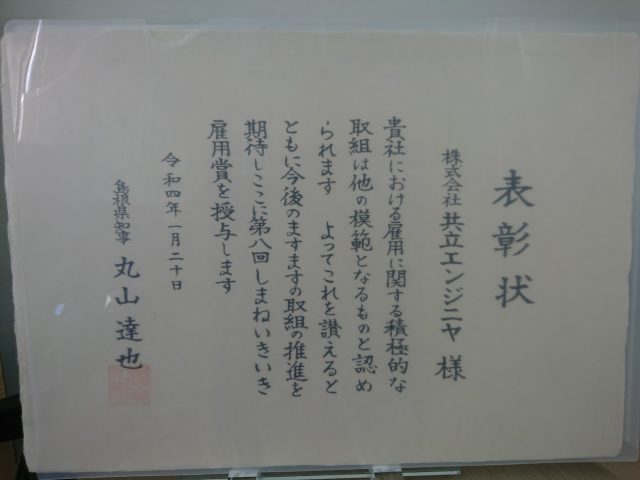 表彰状
株式会社 共立エンジニヤ 様
貴社における雇用に関する積極的な
取組は他の模範となるものと認め
られます よってこれを讃えると
ともに今後のますますの取組の推進を
期待しここに第八回しまねいきいき
雇用賞を授与します
令和四年一月二十日
島根県知事 丸山達也